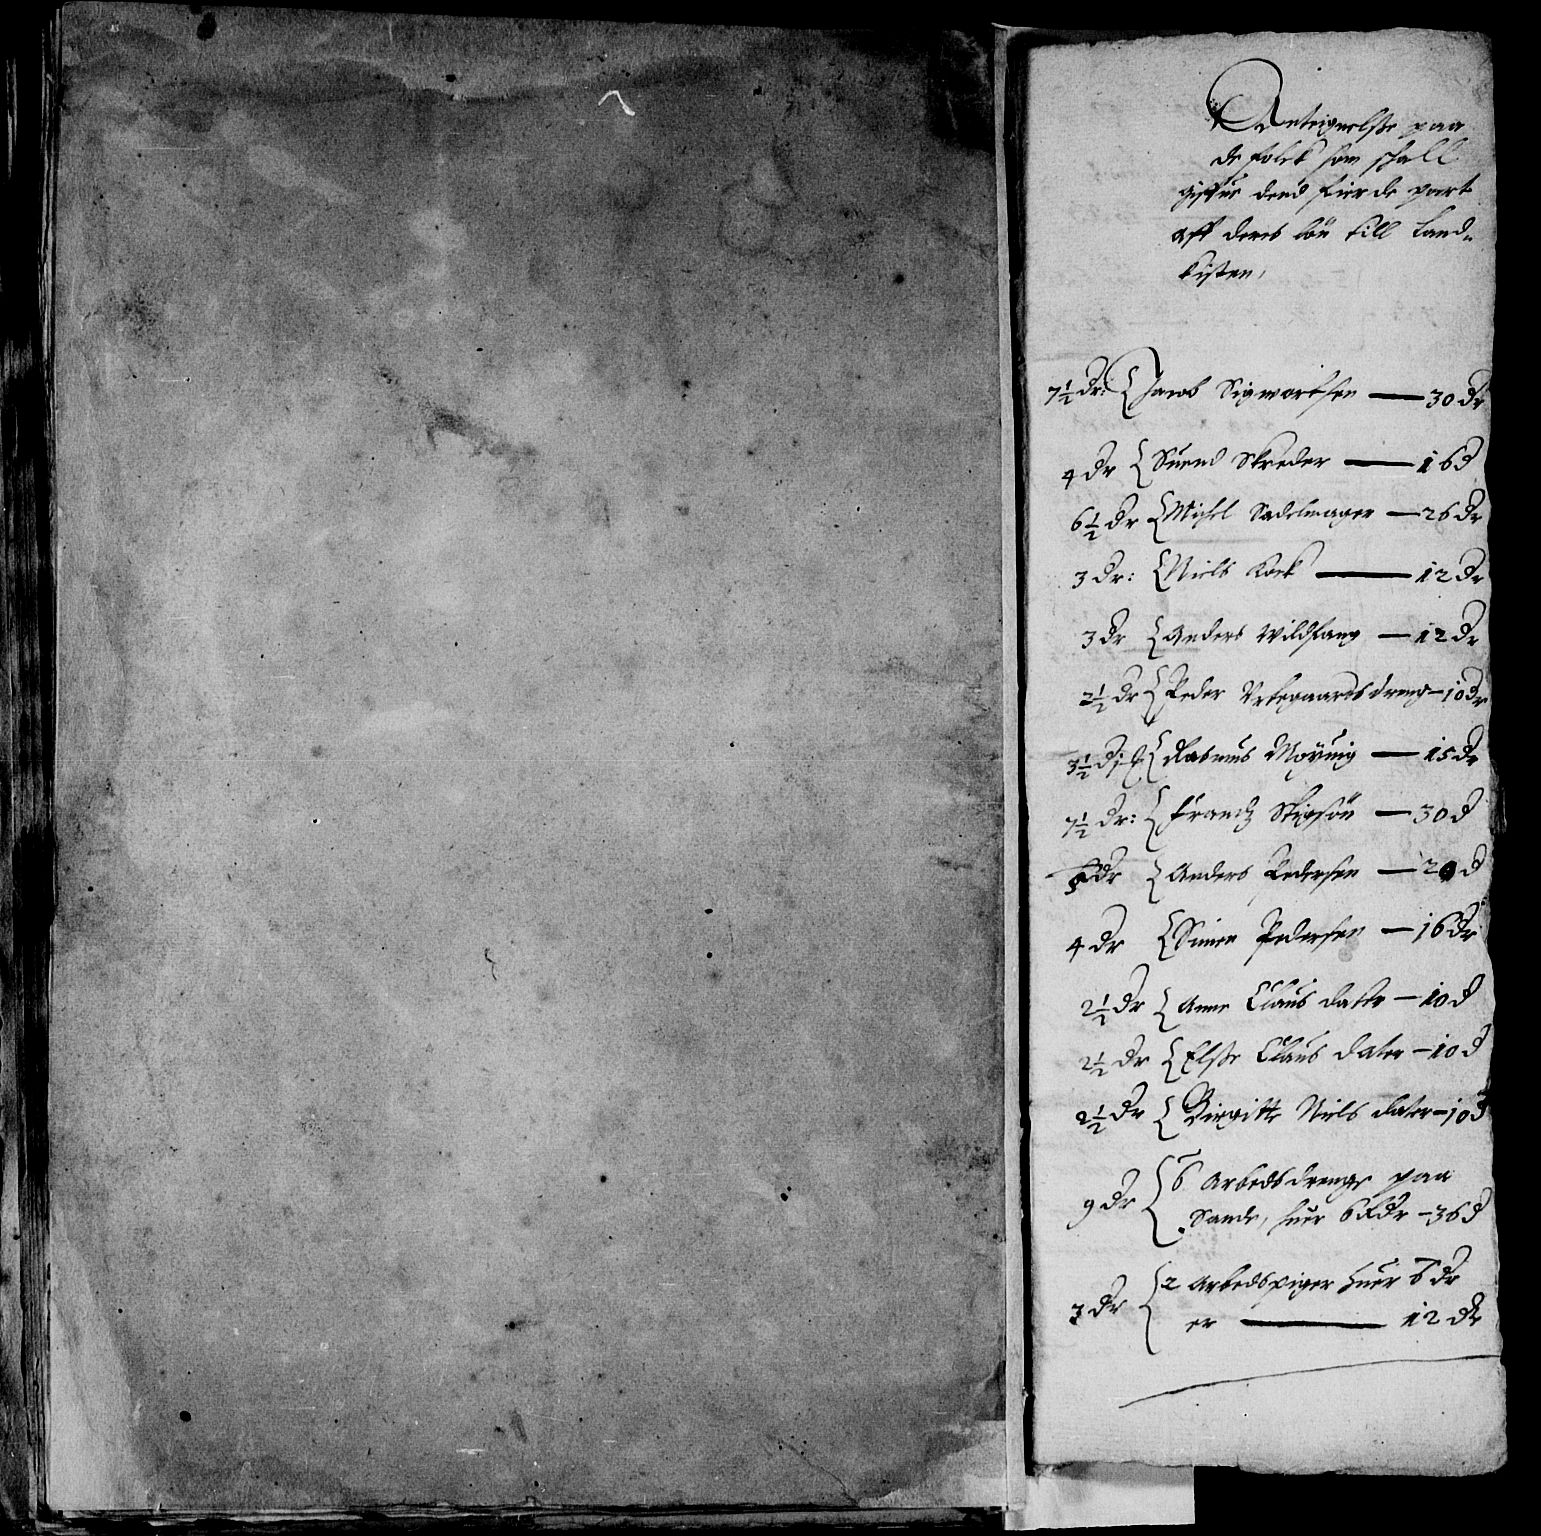 Anteignelsse paa
de folck som schall
giffue dend fierde part
aff deres lön till Land-
kisten,
7½ Dr: { Jacob Sigwortsen — 30 Dr
4 Dr { Suend Skreder — 16 D
6½ Dr { Michel Sadelmager — 26 Dr
3 Dr: { Niels Kock — 12 Dr
3 Dr { Anders Wildfang — 12 Dr
2½ Dr { Peder Vrtegaardsdreng — 10 Dr
3½ D 1 { Rasmus — 15 Dr
7½ Dr: { Frandtz Stigsön — 30 D
5 Dr { Anders Pedersen — 20 D
4 Dr { Simen Pedersen — 16 Dr
2½ Dr { Anne Claus datter — 10 D
2½ Dr { Elsse Claus dater — 10 D
2½ Dr { Birgitte Niels dater — 10 D
9 Dr { 6 Arbedsdrenge paa
Sande, huer 6 Dr — 36 D
3 Dr { 2 Arbedspiger huer 6 Dr
er — 12 Dr